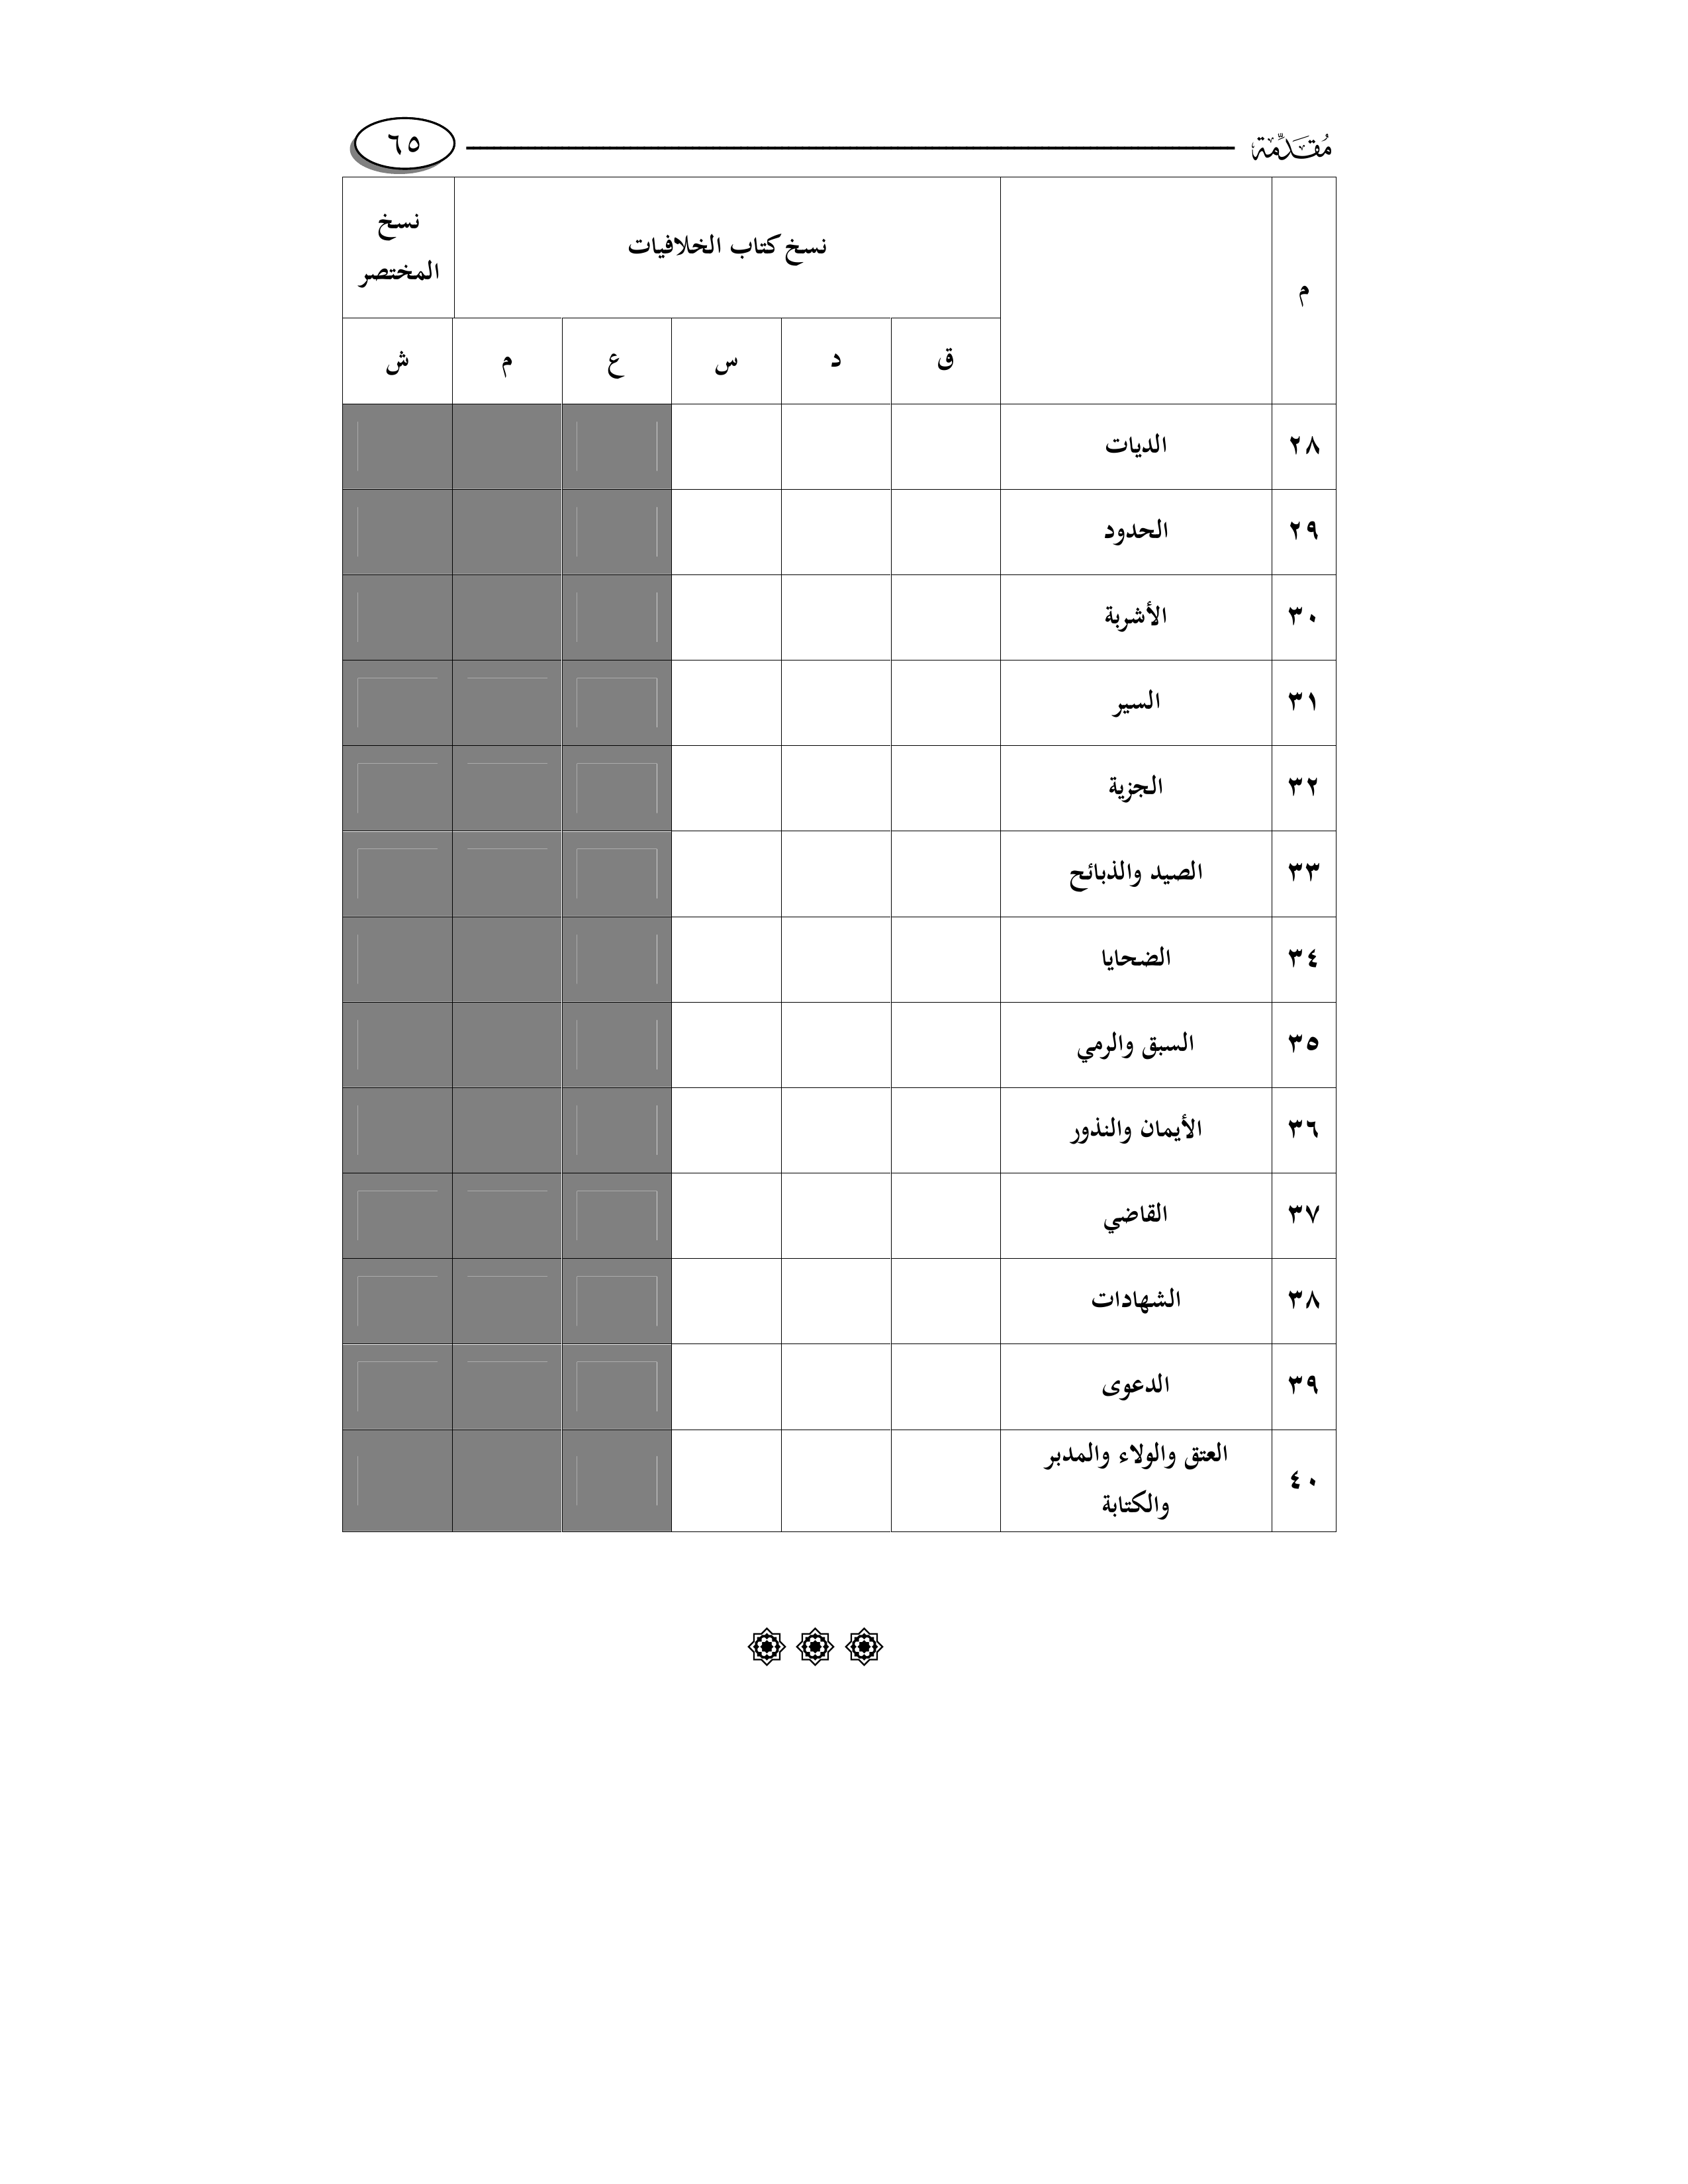 مُقَدِّمَة
٦٥
م
نسخ كتاب الخلافيات
نسخ
المختصر
ق د س ع م ش
٢٨ الديات
٢٩ الحدود
٣٠ الأشربة
٣١ السير
٣٢ الجزية
٣٣ الصيد والذبائح
٣٤ الضحايا
٣٥ السبق والرمي
٣٦ الأيمان والنذور
٣٧ القاضي
٣٨ الشهادات
٣٩ الدعوى
٤٠ العتق والولاء والمدبر
والكتابة